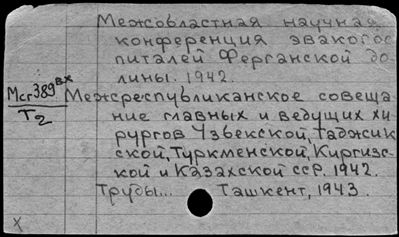 Межобластная научная
конференция эвакогос
питалей Ферганской до
лины. 1942.
Мсг389вх
Т2
Межреспубликанское совеща
ние главных и ведущих хи
рургов Узбекской, Таджик
ской, Туркменской, Киргизс
кой и Казахской ССР. 1942.
Труды... Ташкент, 1943.
X